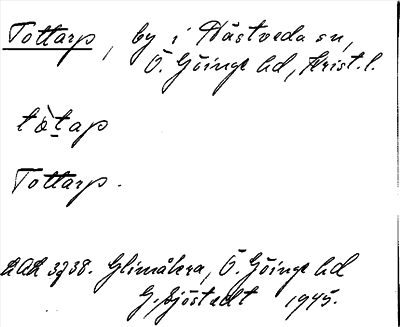 Tottarp, by i Hästveda sn,
Ö. Göinge hd, Krist. l.
tòtap
Tottarp.
LAL 3738. Glimåkra, Ö. Göinge hd
G. Sjöstedt 1945.